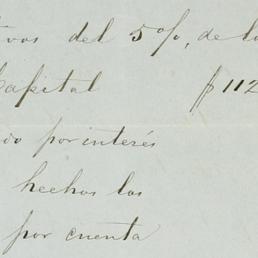 ivos del 5 o/o, de lo
Capital $112
do por interés
hechos las
por cuenta